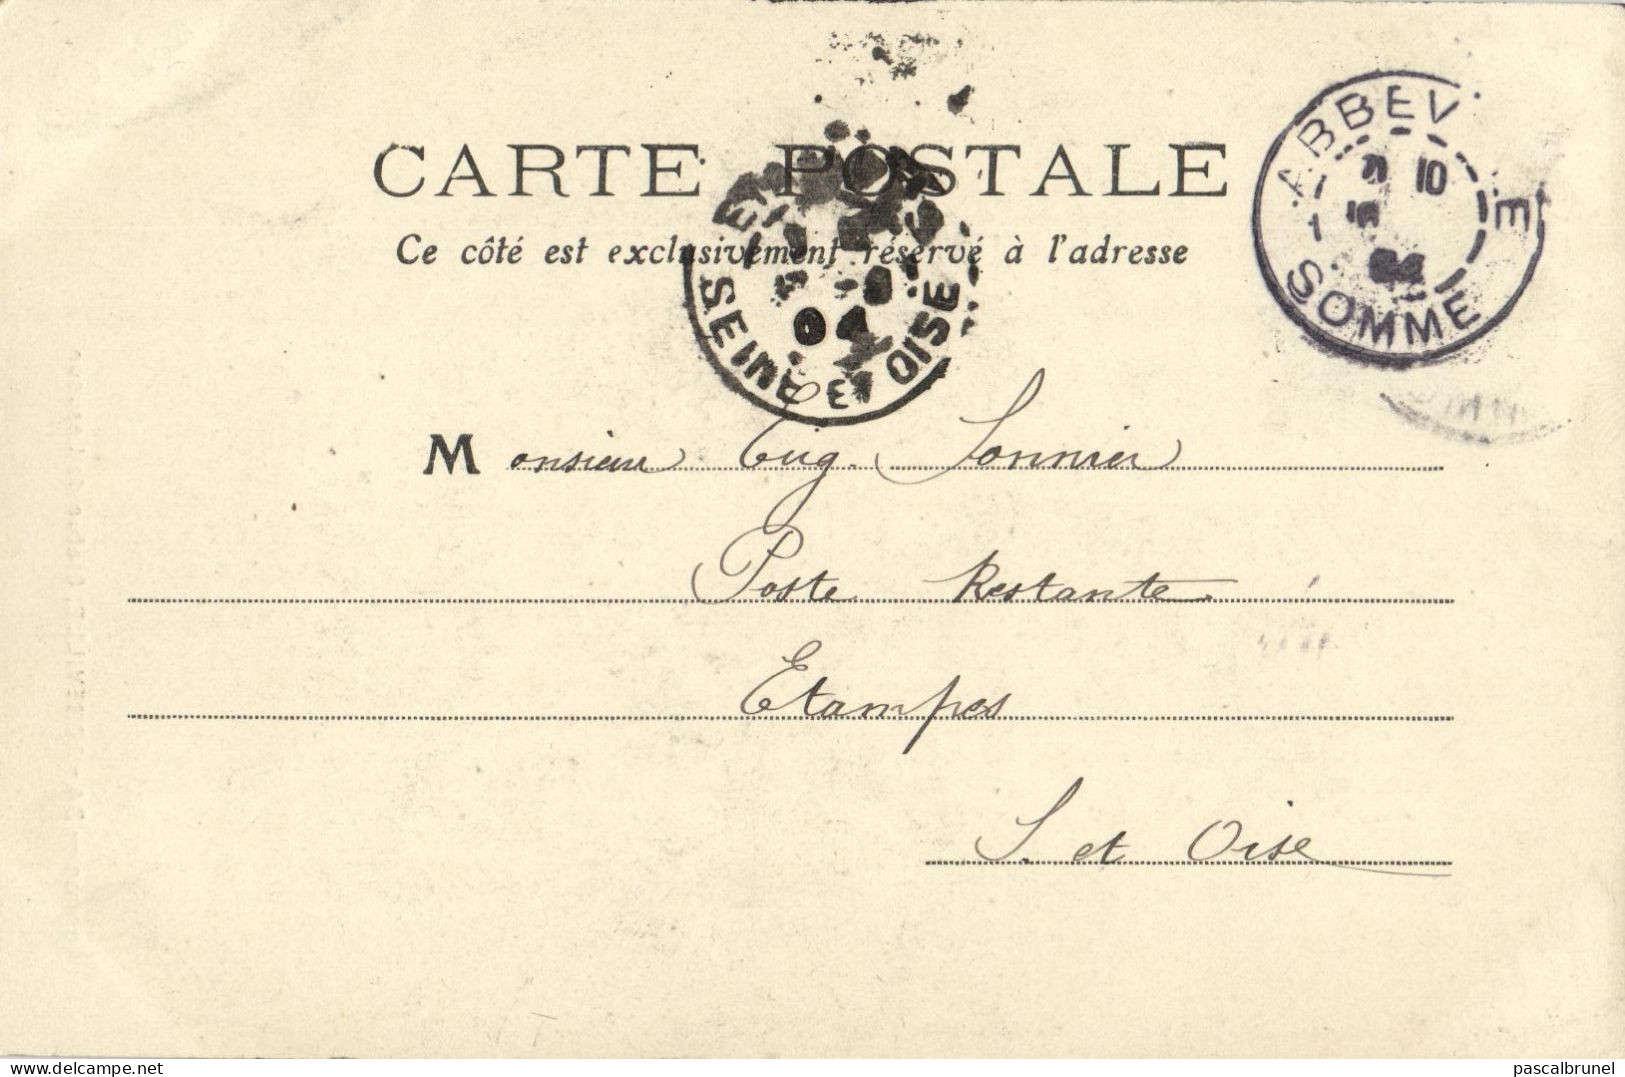 CARTE POSTALE
Ce côté est exclusivement réservé à l'adresse
ABBEV E
10
04
SOMME
04
SEINE ET OISE
Monsieur Eug. Sonnier
Poste Restante
Etampes
S. et Oise
delcampe.net
pascalbrunel